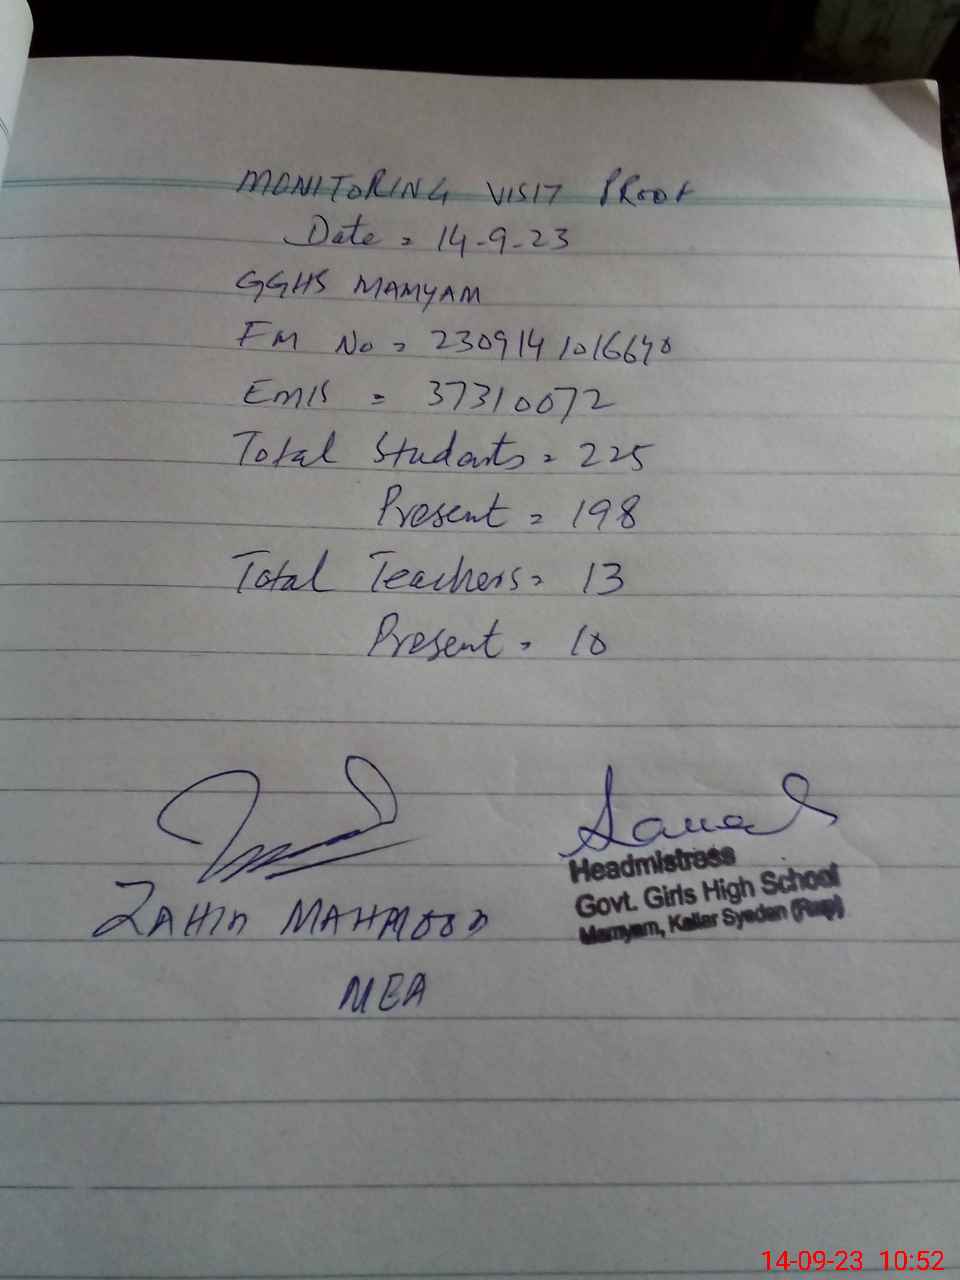 MONITORING VISIT PROOF
Date = 14-9-23
GGHS MAMYAM
FM No = 2309141016640
EMIS = 37310072
Total Students = 225
Present = 198
Total Teachers = 13
Present = 10
ZAHID MAHMOOD
MEA
Headmistress
Govt. Girls High School
Mamyam, Kallar Syedan (Rwp)
14-09-23 10:52